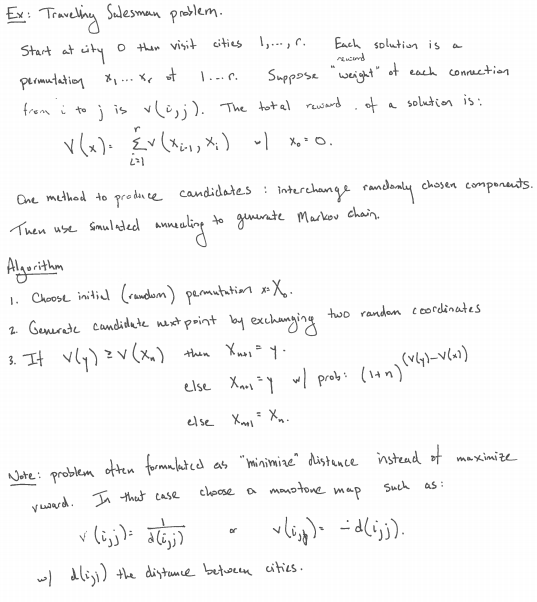 Ex: Traveling Salesman problem.
Start at city 0 then visit cities 1,..., r. Each solution is a
reward
permutation x₁ ... xᵣ of 1 ... r. Suppose "weight" of each connection
from i to j is v(i,j). The total reward of a solution is:
V(x) = Σᵢ₌₁ʳ v(xᵢ₋₁, xᵢ) w/ x₀ = 0.
One method to produce candidates : interchange randomly chosen components.
Then use simulated annealing to generate Markov chain.
Algorithm
1. Choose initial (random) permutation x = X₀.
2. Generate candidate next point by exchanging two random coordinates
3. If V(y) ≥ V(Xₙ) then Xₙ₊₁ = y.
else Xₙ₊₁ = y w/ prob: (1+n)^(V(y)-V(x))
else Xₙ₊₁ = Xₙ.
Note: problem often formulated as "minimize" distance instead of maximize
reward. In that case choose a monotone map such as:
v(i,j) = 1/d(i,j) or v(i,j) = -d(i,j).
w/ d(i,j) the distance between cities.